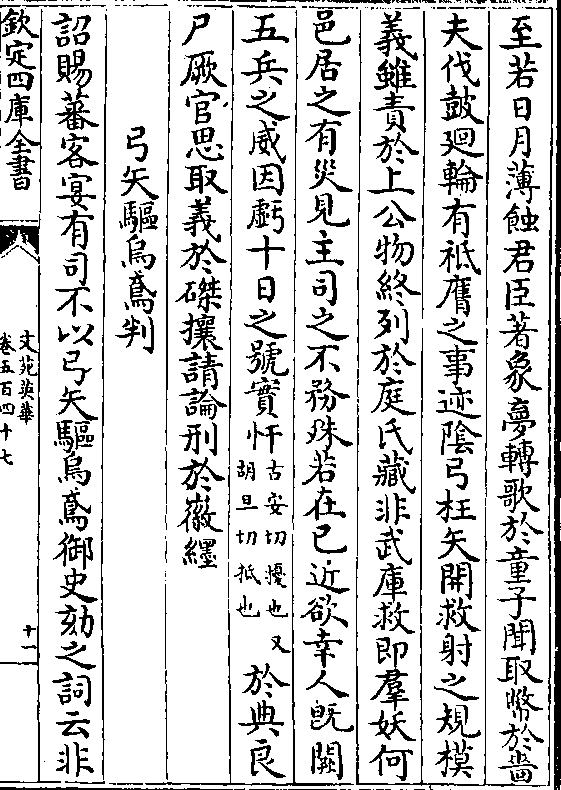 至若日月薄蝕君臣著象夢轉歌於童子聞取幣於嗇
夫伐鼓廻輪有祇膺之事迹陰弓枉矢開救射之規模
義雖責於上公物終列於庭氏藏非武庫救即羣妖何
邑居之有災見主司之不務殊若在已近欲幸人旣闕
五兵之威因虧十日之號實忓古安切擾也又胡旦切抵也於典良
尸厥官思取義於磔攘請論刑於徽纆
弓矢驅烏鳶判
詔賜蕃客宴有司不以弓矢驅烏鳶御史劾之詞云非
欽定四庫全書
文苑英華
卷五百四十七
十一